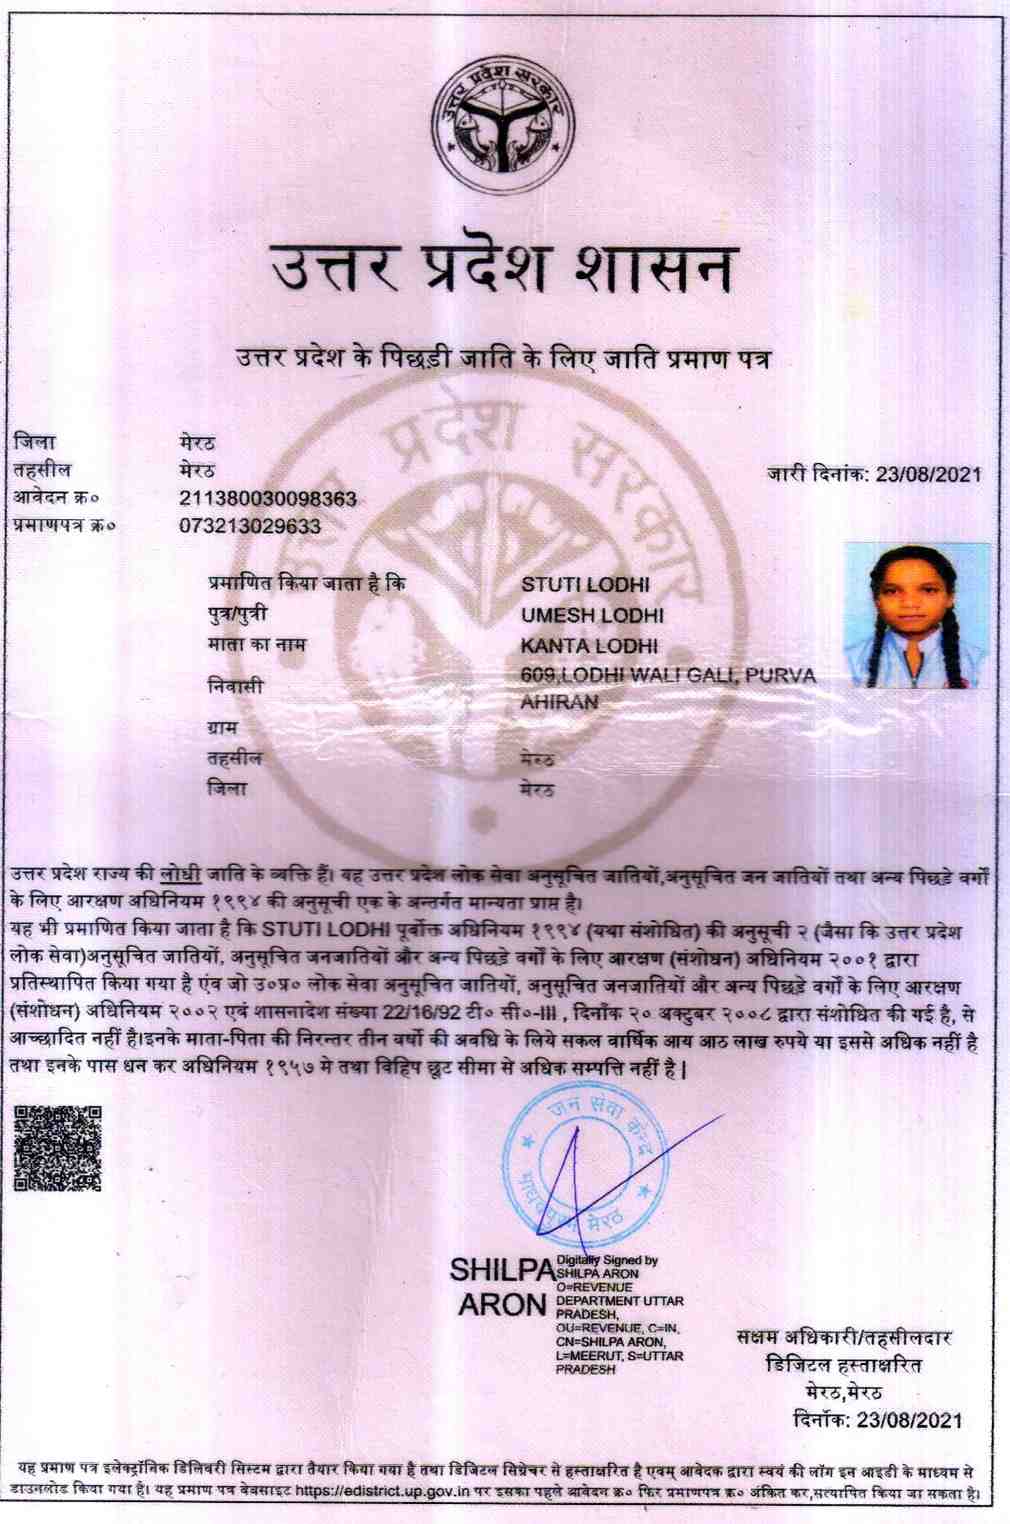 उत्तर प्रदेश सरकार
उत्तर प्रदेश शासन
उत्तर प्रदेश के पिछड़ी जाति के लिए जाति प्रमाण पत्र
उत्तर प्रदेश सरकार
जिला मेरठ
तहसील मेरठ
जारी दिनांक: 23/08/2021
आवेदन क्र० 211380030098363
प्रमाणपत्र क्र० 073213029633
प्रमाणित किया जाता है कि STUTI LODHI
पुत्र/पुत्री UMESH LODHI
माता का नाम KANTA LODHI
निवासी 609,LODHI WALI GALI, PURVA
AHIRAN
ग्राम
तहसील मेरठ
जिला मेरठ
उत्तर प्रदेश राज्य की लोधी जाति के व्यक्ति हैं। यह उत्तर प्रदेश लोक सेवा अनुसूचित जातियों,अनुसूचित जन जातियों तथा अन्य पिछड़े वर्गों
के लिए आरक्षण अधिनियम १९९४ की अनुसूची एक के अन्तर्गत मान्यता प्राप्त है।
यह भी प्रमाणित किया जाता है कि STUTI LODHI पूर्वोक्त अधिनियम १९९४ (यथा संशोधित) की अनुसूची २ (जैसा कि उत्तर प्रदेश
लोक सेवा)अनुसूचित जातियों, अनुसूचित जनजातियों और अन्य पिछड़े वर्गों के लिए आरक्षण (संशोधन) अधिनियम २००१ द्वारा
प्रतिस्थापित किया गया है एंव जो उ०प्र० लोक सेवा अनुसूचित जातियों, अनुसूचित जनजातियों और अन्य पिछड़े वर्गों के लिए आरक्षण
(संशोधन) अधिनियम २००२ एवं शासनादेश संख्या 22/16/92 टी० सी०-III , दिनाँक २० अक्टुबर २००८ द्वारा संशोधित की गई है, से
आच्छादित नहीं है।इनके माता-पिता की निरन्तर तीन वर्षो की अवधि के लिये सकल वार्षिक आय आठ लाख रुपये या इससे अधिक नहीं है
तथा इनके पास धन कर अधिनियम १९५७ मे तथा विहिप छूट सीमा से अधिक सम्पत्ति नहीं है |
जन सेवा केन्द्र
मेरठ
SHILPA
ARON
Digitally Signed by
SHILPA ARON
O=REVENUE
DEPARTMENT UTTAR
PRADESH,
OU=REVENUE, C=IN,
CN=SHILPA ARON,
L=MEERUT, S=UTTAR
PRADESH
सक्षम अधिकारी/तहसीलदार
डिजिटल हस्ताक्षरित
मेरठ,मेरठ
दिनॉक: 23/08/2021
यह प्रमाण पत्र इलेक्ट्रॉनिक डिलिवरी सिस्टम द्वारा तैयार किया गया है तथा डिजिटल सिग्नेचर से हस्ताक्षरित है एवम् आवेदक द्वारा स्वयं की लॉग इन आइडी के माध्यम से
डाउनलोड किया गया है। यह प्रमाण पत्र वेबसाइट https://edistrict.up.gov.in पर इसका पहले आवेदन क्र० फिर प्रमाणपत्र क्र० अंकित कर,सत्यापित किया जा सकता है।